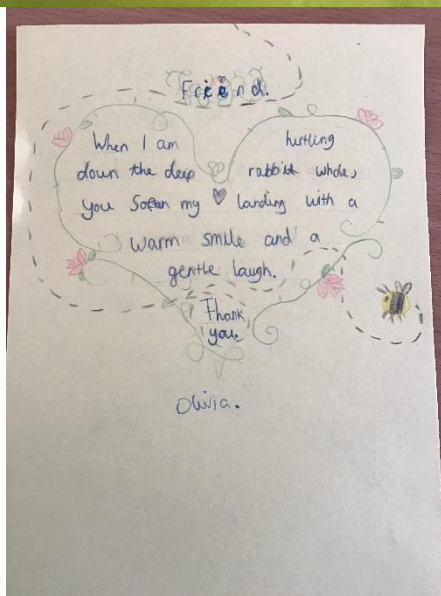 Friend.
When I am hurtling
down the deep rabbit whole,
you Soften my landing with a
warm smile and a
gentle laugh.
Thank
you.
Olivia.